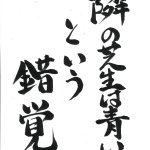 隣の芝生は青い
という
錯覚